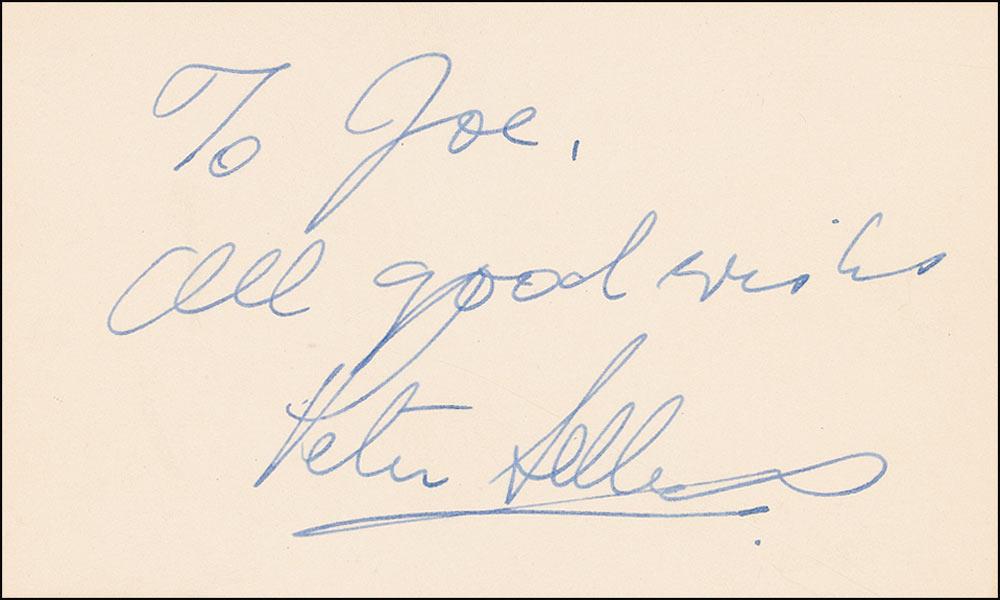 To Joe,
All good wishes
Peter Sellers